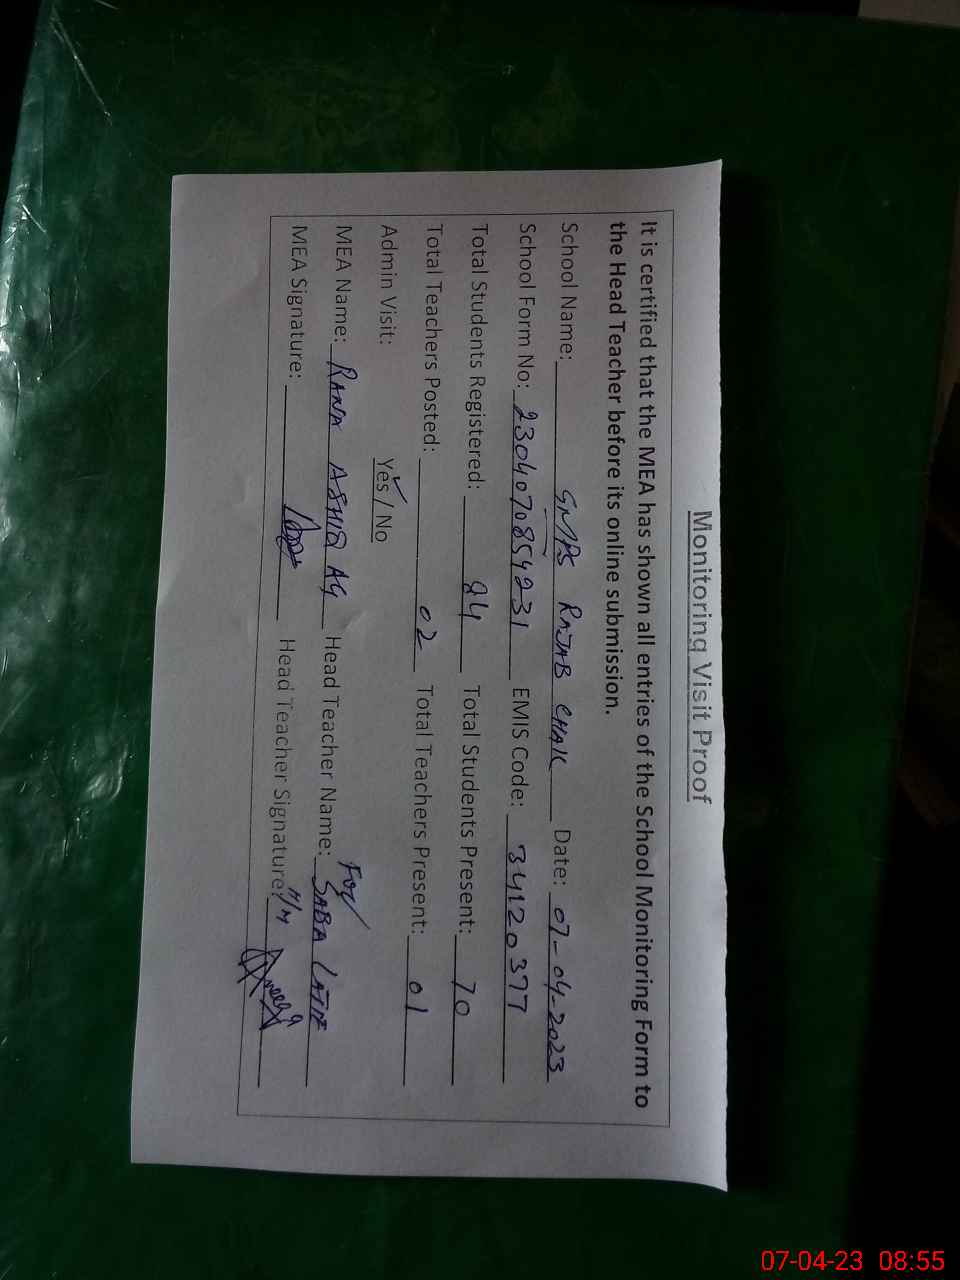 Monitoring Visit Proof
It is certified that the MEA has shown all entries of the School Monitoring Form to
the Head Teacher before its online submission.
School Name: GMPS RAJAB CHAK Date: 07-04-2023
School Form No: 2304070854231 EMIS Code: 34120377
Total Students Registered: 84 Total Students Present: 70
Total Teachers Posted: 02 Total Teachers Present: 01
Admin Visit: Yes / No
For
MEA Name: RANA ASHIQ Head Teacher Name: SABA LATIF
MEA Signature: Head Teacher Signature:
07-04-23 08:55